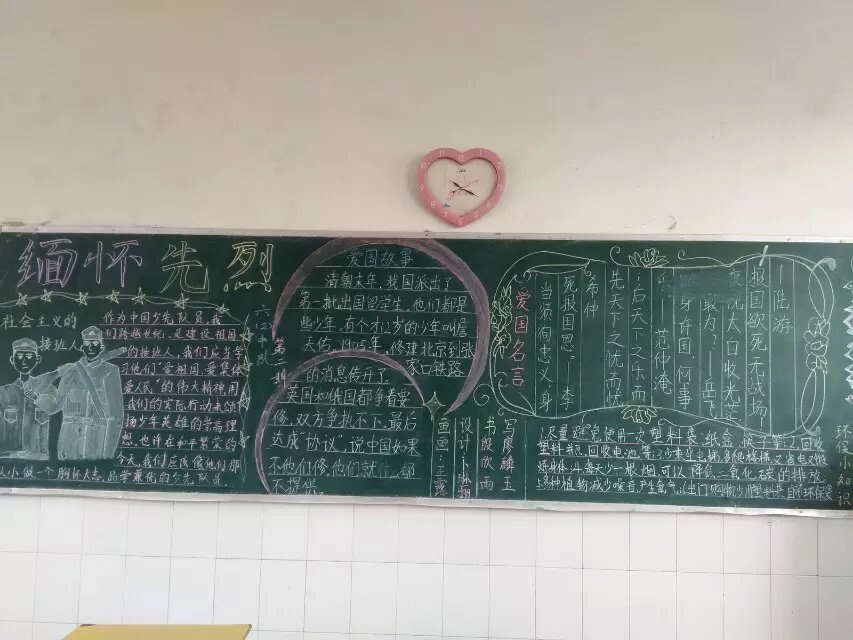 缅怀先烈
社会主义的
接班人
作为中国少先队员,我
们跨越世纪,是建设祖国
的接班人,我们应当学
习他们"爱祖国,爱集体
爱人民"的伟大精神用
我们的实际行动来颂
扬少年英雄的崇高理
想,也许在和平繁荣的
今天,我们应该像他们那
从小做一个胸怀大志,品学兼优的少先队员
六(2)中队
第二期
爱国故事
清朝末年,我国派出了
第一批出国留学生,他们都是
些少年,有个才12岁的少年叫詹
天佑,1905年,修建北京到张
家口铁路
的消息传开了,
英国和俄国都争着要
修,双方争执不下,最后
达成"协议"说中国如果
不他们修他们就什么都
不提供。
画画:王露
设计:卜琳翔
书殷欣雨
写廖麟玉
爱国名言
当须徇忠义,身
死报国恩。—李
希仲
先天下之忧而忧
,后天下之乐而
乐。—范仲淹
一身许国,何事
最为?—岳飞
太白收光芒
报国欲死无战场!
—陆游
尽量避免使用一次塑料袋,纸盒,筷子等2回收
塑料瓶
一根烟,可以降低二氧化碳的排放
植物减少噪音,产生氧气
环保小知识